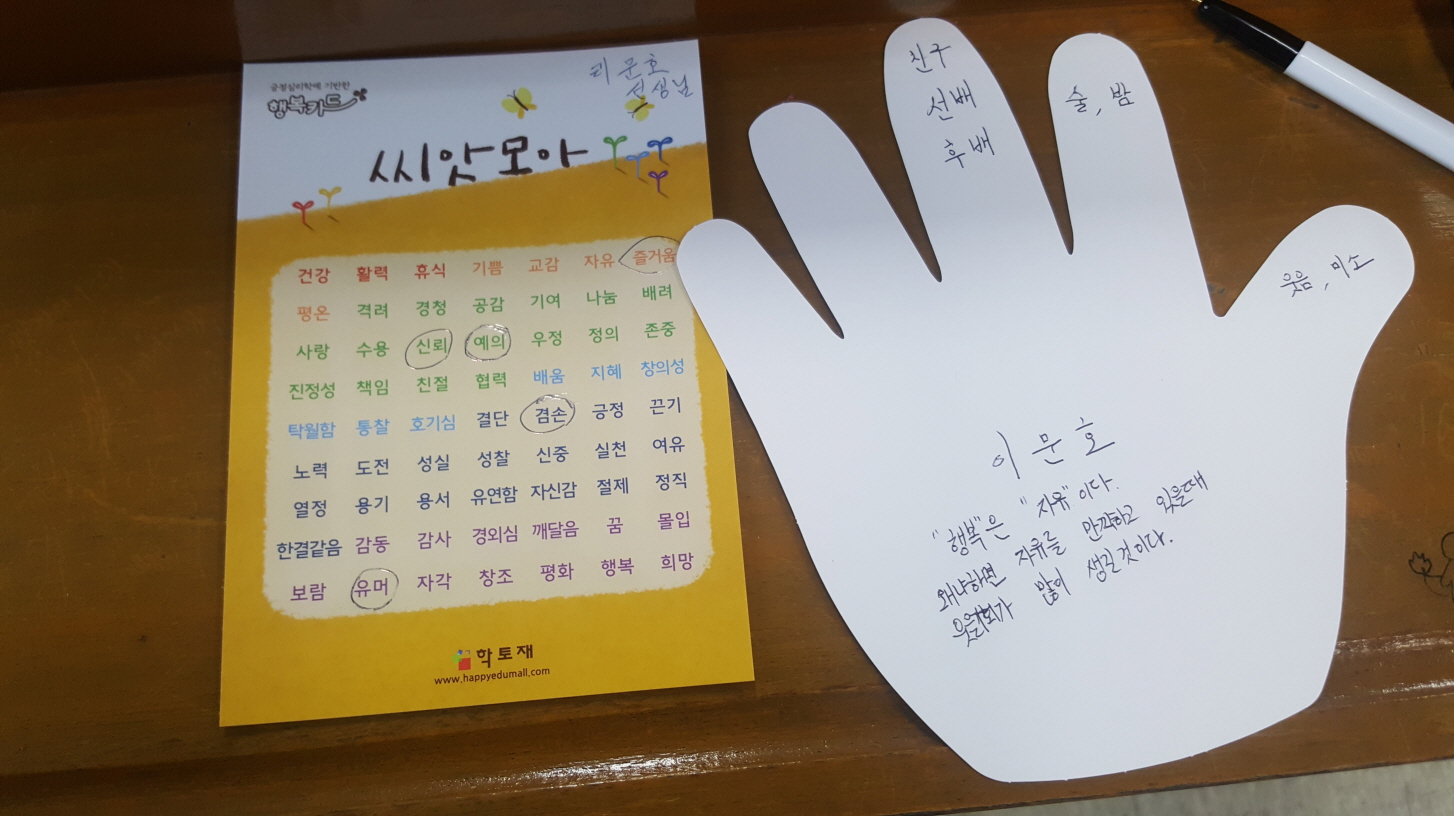 긍정심리학에 기반한
행복카드
리문호
선생님
씨앗모아
건강 활력 휴식 기쁨 교감 자유 즐거움
평온 격려 경청 공감 기여 나눔 배려
사랑 수용 신뢰 예의 우정 정의 존중
진정성 책임 친절 협력 배움 지혜 창의성
탁월함 통찰 호기심 결단 겸손 긍정 끈기
노력 도전 성실 성찰 신중 실천 여유
열정 용기 용서 유연함 자신감 절제 정직
한결같음 감동 감사 경외심 깨달음 꿈 몰입
보람 유머 자각 창조 평화 행복 희망
학토재
www.happyedumall.com
친구
선배
후배
술, 밤
웃음, 미소
이문호
"행복"은 "자유"이다.
왜냐하면 자유를 만끽하고 있을때
많이 생길것이다.